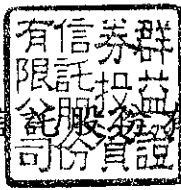 群益證
券投資
信託股份
有限公司